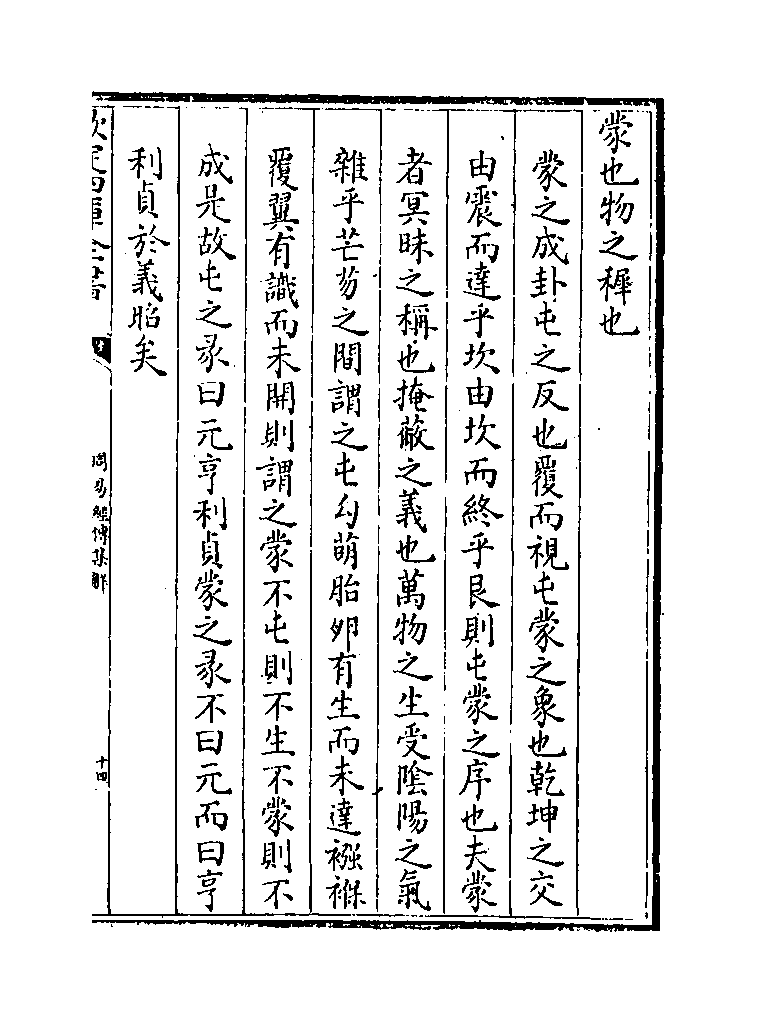 蒙也物之穉也
蒙之成卦屯之反也覆而視屯蒙之象也乾坤之交
由震而達乎坎由坎而終乎艮則屯蒙之序也夫蒙
者冥昧之稱也掩蔽之義也萬物之生受陰陽之氣
雜乎芒芴之間謂之屯勾萌胎夘有生而未達襁褓
覆翼有識而未開則謂之蒙不屯則不生不蒙則不
成是故屯之彖曰元亨利貞蒙之彖不曰元而曰亨
利貞於義昭矣
欽定四庫全書
周易經傳集解
十四